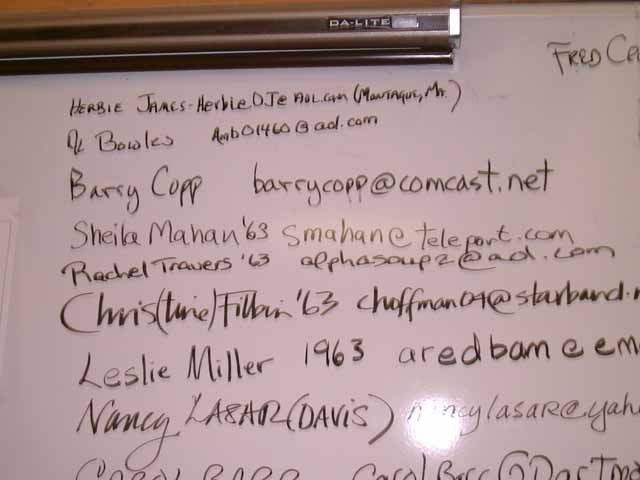 DA-LITE
FRED
HERBIE JAMES - HerbieDJ@AOL.com (Montague, Ma.)
Bowles @aol.com
Barry Copp barrycopp@comcast.net
Sheila Mahan '63 smahan@teleport.com
Rachel Travers '63 alphasoup2@aol.com
Chris(tine) Filbin '63 choffman04@starband.n
Leslie Miller 1963 aredbam@em
Nancy LASAR (DAVIS) nancylasar@yah
CAROL BARR CarolBarr@Dartmo